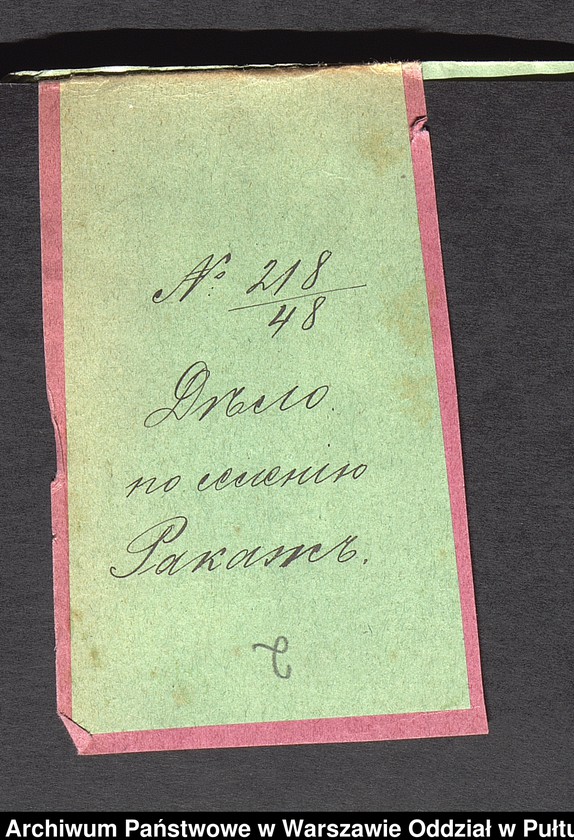 № 218/48
Дѣло
по селенію
Ракажъ.
Archiwum Państwowe w Warszawie Oddział w Pułtu